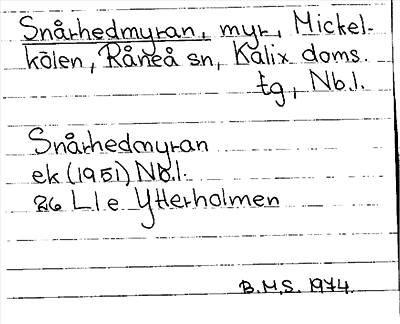 Snårhedmyran, myr, Mickel-
kölen, Råneå sn, Kalix doms.
tg, Nb.l.
Snårhedmyran
ek (1951) Nb.l.
26 L l e Ytterholmen
B.M.S. 1974.